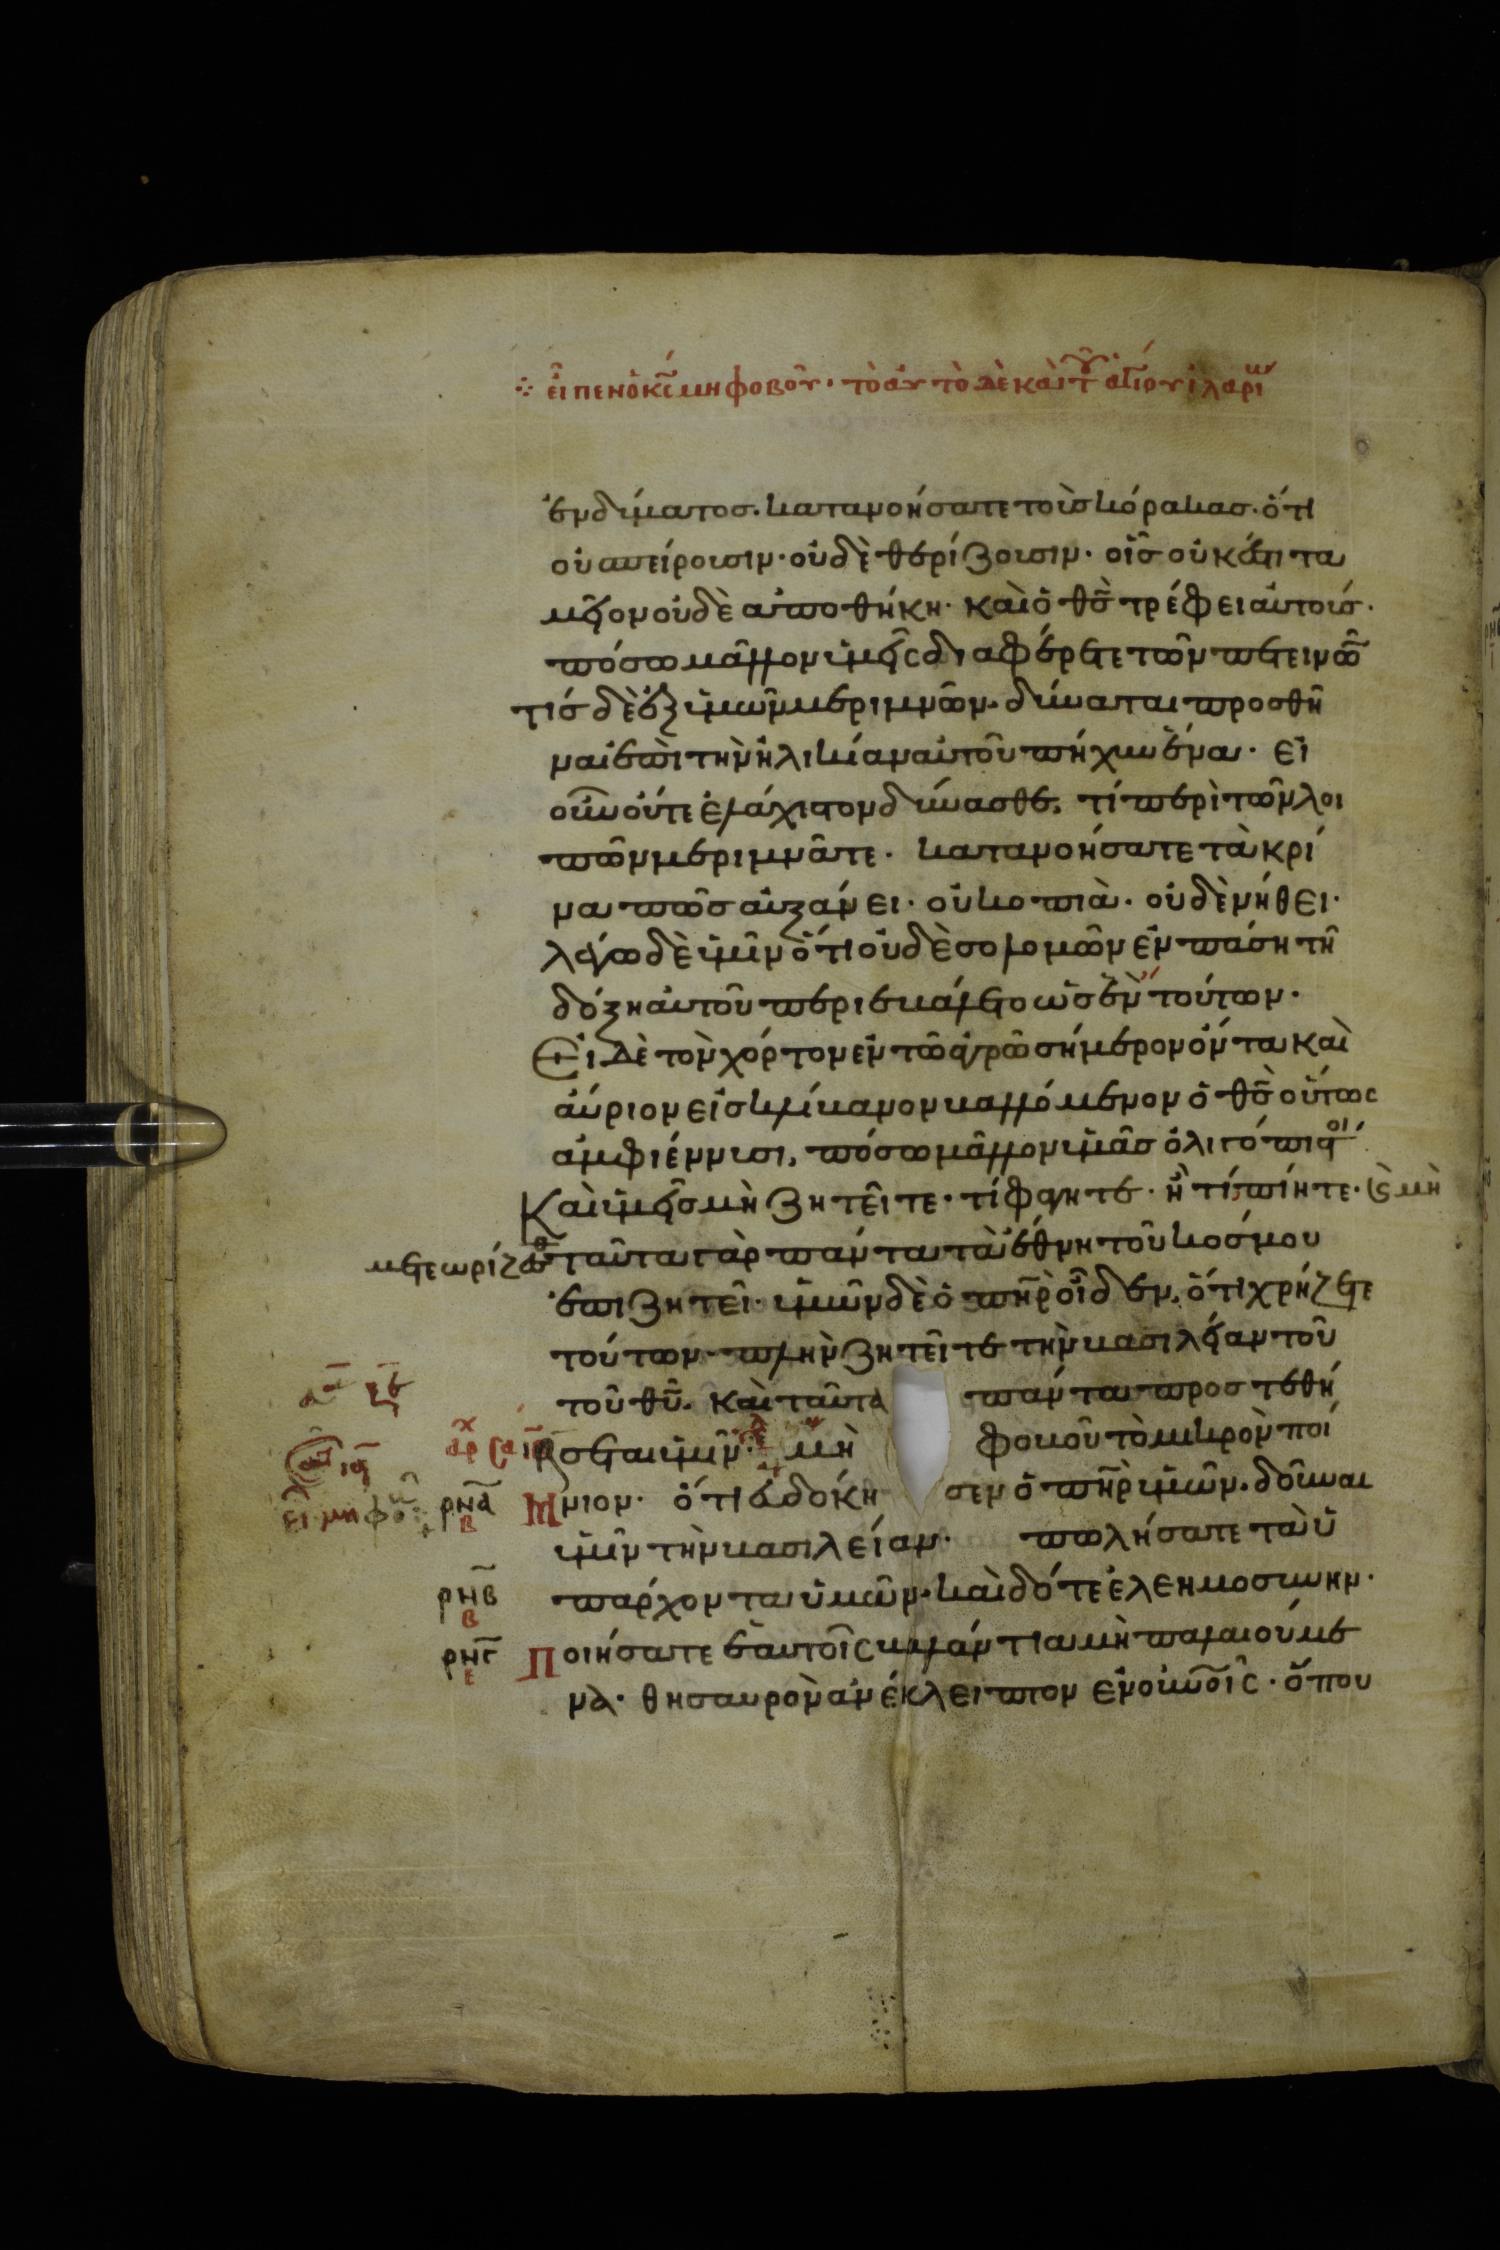 εἶπεν ὁ κς μη φοβοῦ· τὸ αὐτὸ δὲ καὶ τ ἁγίου ἱλαρί
ἐνδύματος. κατανοήσατε τοὺς κόρακας. ὅτι
οὐ σπείρουσιν· οὐδὲ θερίζουσιν· οἷς οὐκ ἔστι τα
μεῖον οὐδὲ ἀποθήκη· καὶ ὁ θς τρέφει αὐτούς·
πόσω μᾶλλον ὑμεῖς διαφέρετε τῶν πετεινῶ
τίς δὲ ἐξ ὑμῶν μεριμνῶν· δύναται προσθῆ
ναι ἐπὶ τὴν ἡλικίαν αὐτοῦ πήχυν ἕνα· εἰ
οὖν οὔτε ἐλάχιστον δύνασθε, τί περὶ τῶν λοι
πῶν μεριμνᾶτε· κατανοήσατε τὰ κρί
να πῶς αὐξάνει· οὐ κοπιὰ· οὐδὲ νήθει·
λέγω δὲ ὑμῖν ὅτι οὐδὲ σολομῶν ἐν πάση τῆ
δόξη αὐτοῦ περιεβάλετο ὡς ἓν τούτων·
Εἰ δὲ τὸν χόρτον ἐν τῶ ἀγρῶ σήμερον ὄντα καὶ
αὔριον εἰς κλίβανον βαλλόμενον ὁ θς οὕτως
ἀμφιέννυσι, πόσω μᾶλλον ὑμᾶς ὀλιγόπιστοι
Καὶ ὑμεῖς μὴ ζητεῖτε· τί φάγητε· ἢ τί πίητε· ϗ μὴ
μετεωρίζεσθ ταῦτα γὰρ πάντα τὰ ἔθνη τοῦ κόσμου
ἐπιζητεῖ· ὑμῶν δὲ ὁ πηρ οἶδεν, ὅτι χρήζετε
τούτων· πλὴν ζητεῖτε τὴν βασιλείαν τοῦ
τοῦ θυ. καὶ ταῦτα πάντα προστεθή
σεται ὑμῖν· μὴ φοβοῦ τὸ μικρὸν ποί
ρνα μνιον· ὅτι εὐδόκησεν ὁ πηρ ὑμῶν· δοῦναι
β
ὑμῖν τὴν βασιλείαν· πωλήσατε τὰ ὑ
ρνβ πάρχοντα ὑμῶν· καὶ δότε ἐλεημοσύνην·
β
ρνγ Ποιήσατε ἑαυτοῖς βαλάντια μὴ παλαιούμε
ε
να· θησαυρὸν ἀνέκλειπτον ἐν οὐνοῖς· ὅπου